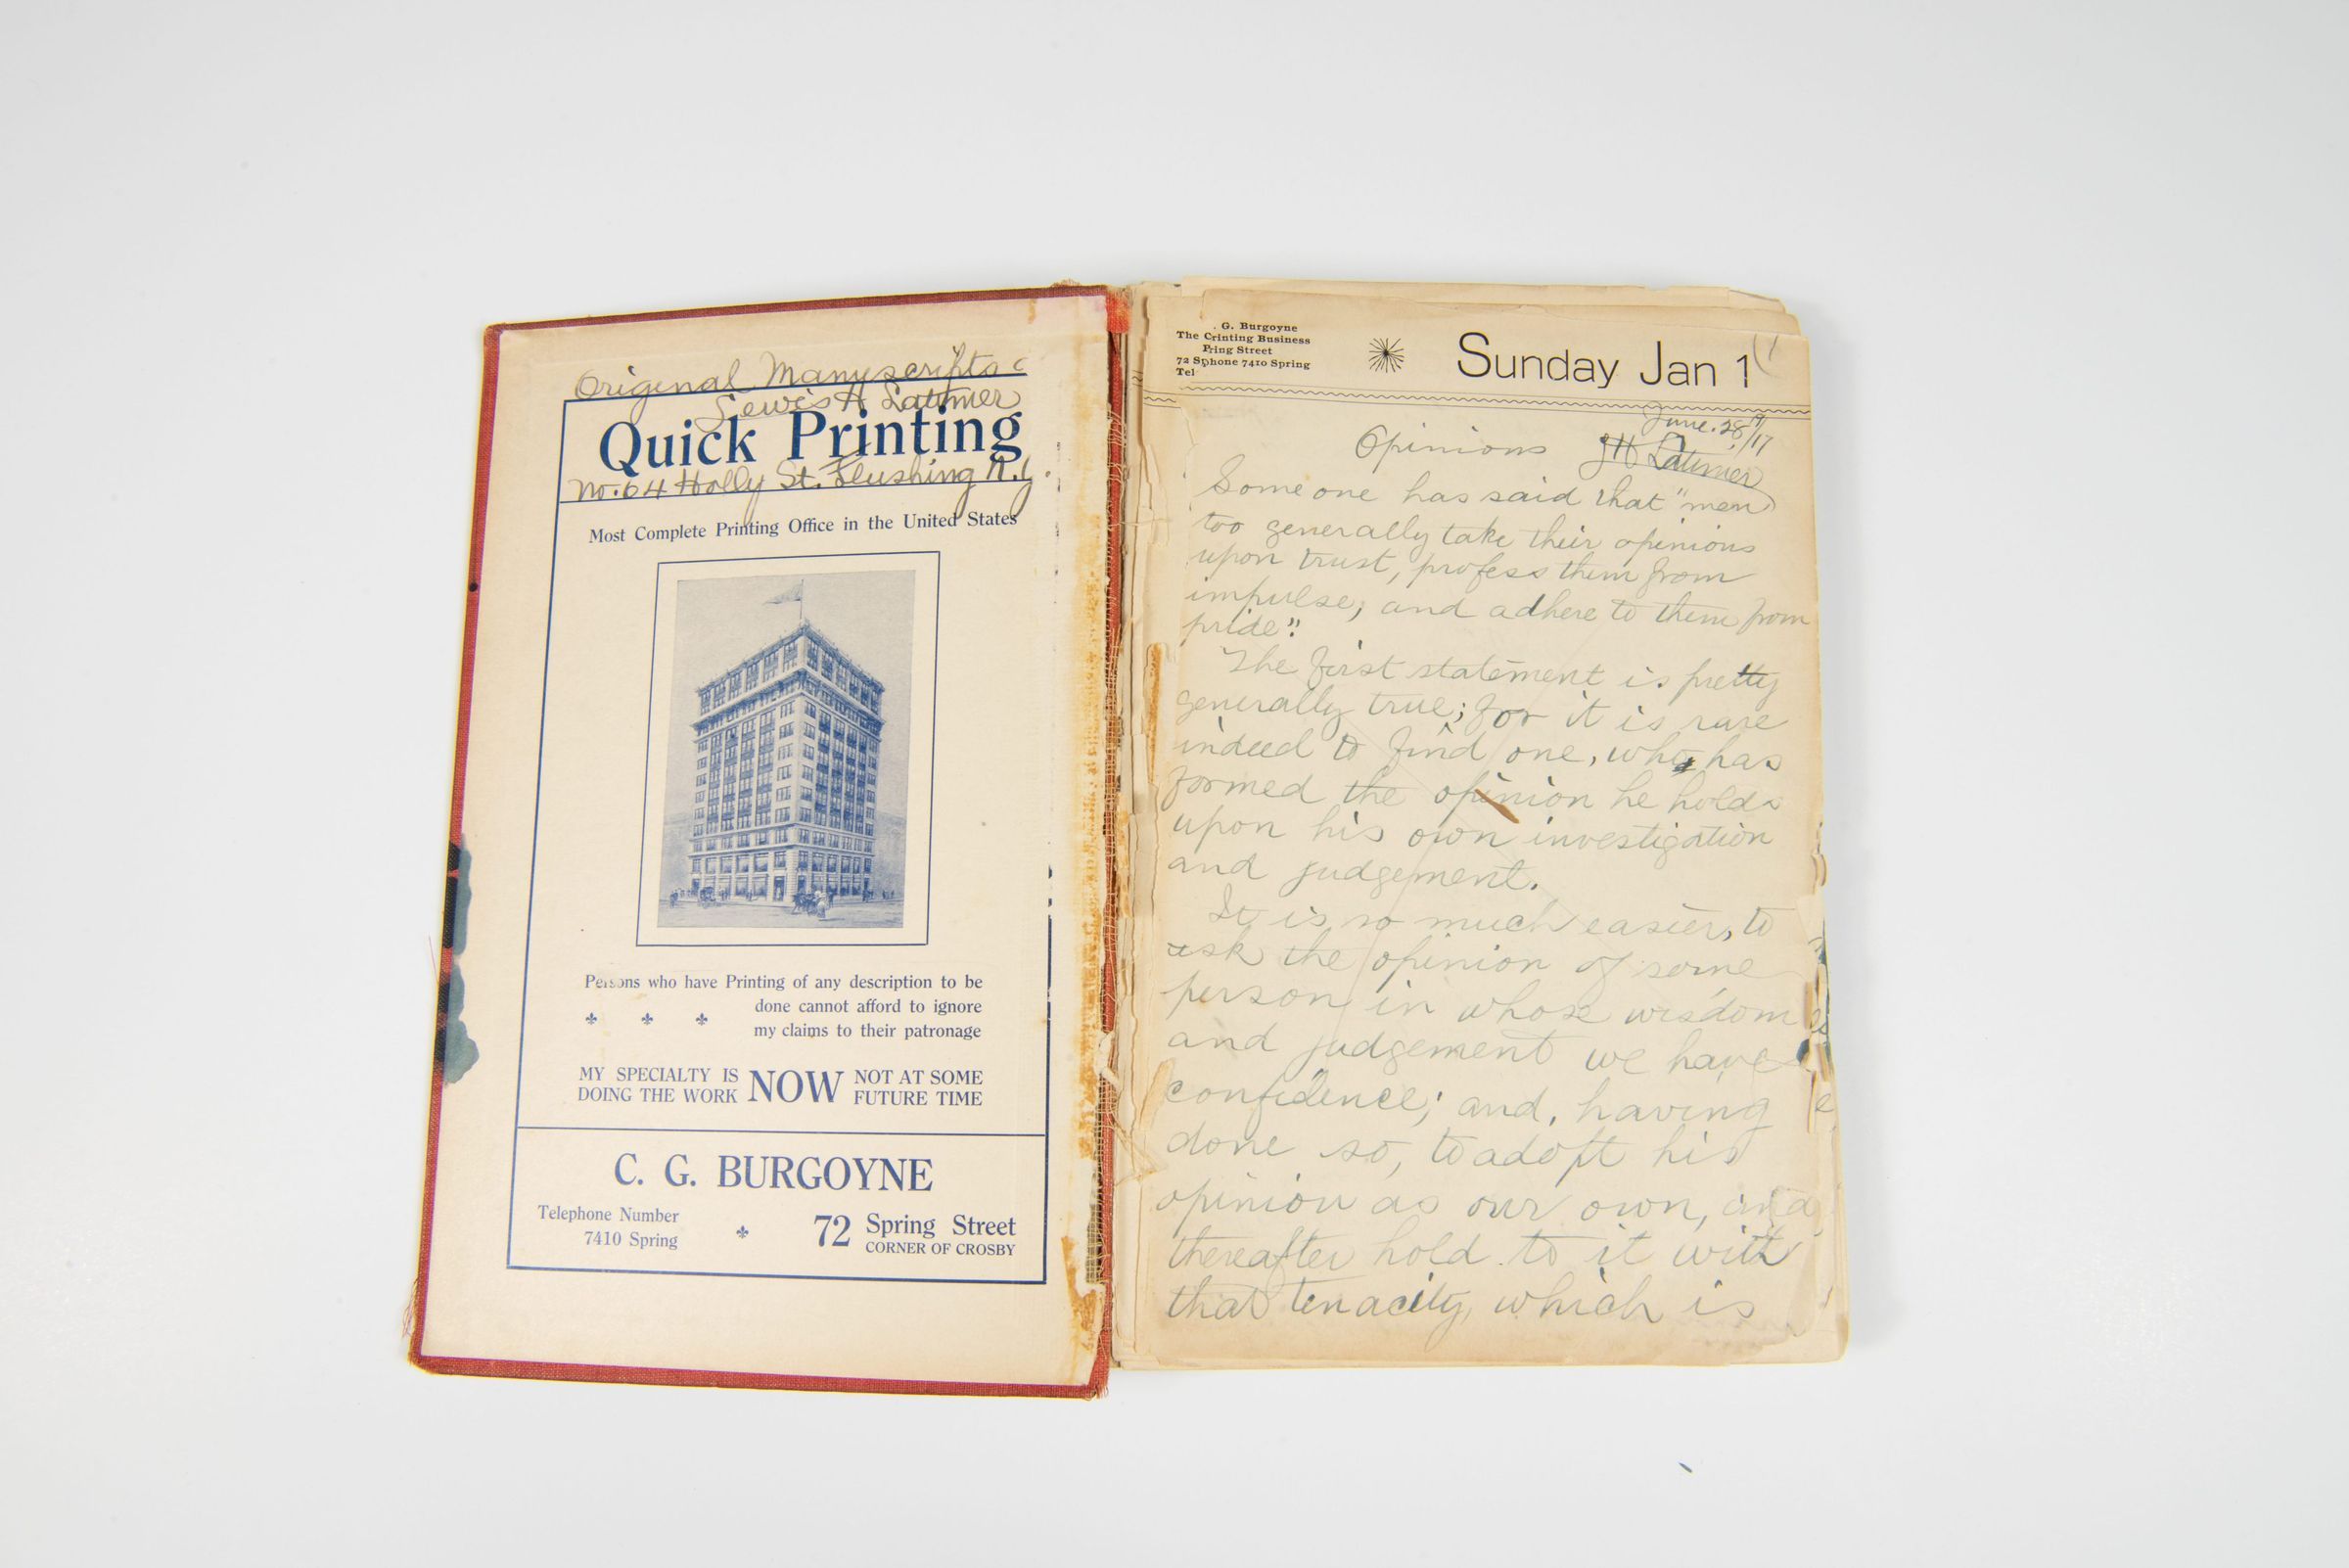 Original Manuscripts
Lewis H Latimer
Quick Printing
No. 64 Holly St. Flushing N.Y.
Most Complete Printing Office in the United States
Persons who have Printing of any description to be
done cannot afford to ignore
my claims to their patronage
MY SPECIALTY IS NOW NOT AT SOME
DOING THE WORK FUTURE TIME
C. G. BURGOYNE
Telephone Number 72 Spring Street
7410 Spring CORNER OF CROSBY
. G. Burgoyne
The Crinting Business
Pring Street
72 Sphone 7410 Spring
Tel
Sunday Jan 1
June. 28/17
Opinions LH Latimer
Some one has said that "men
too generally take their opinions
upon trust, profess them from
impulse, and adhere to them from
pride".
The first statement is pretty
generally true; for it is rare
indeed to find one, who has
formed the opinion he holds
upon his own investigation
and judgement.
It is so much easier, to
ask the opinion of some
person in whose wisdom
and judgement we have
confidence; and, having
done so, to adopt his
opinion as our own, and
thereafter hold to it with
that tenacity, which is